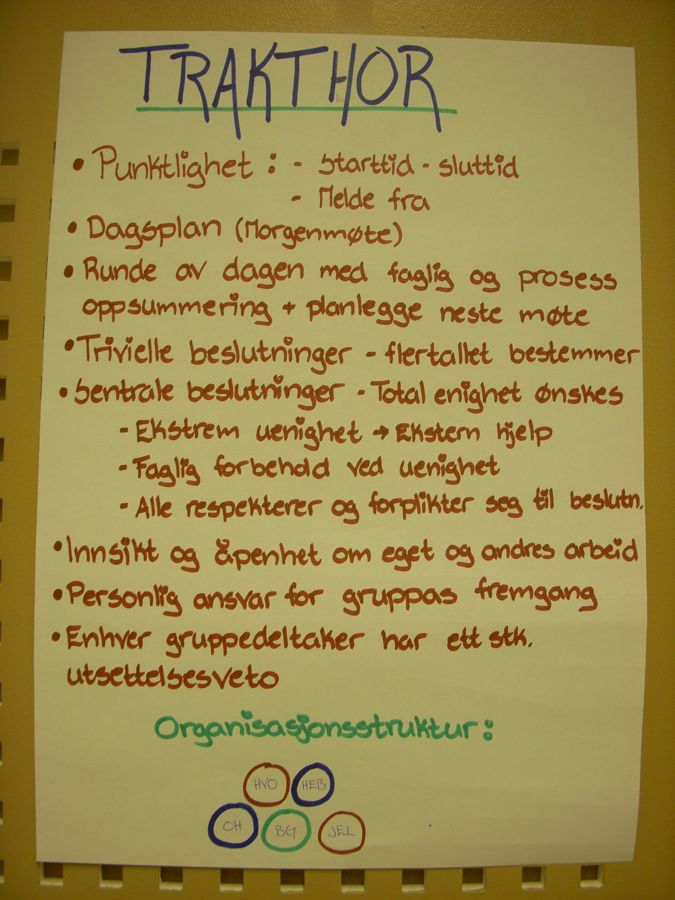 TRAKTHOR
• Punktlighet : - Starttid - sluttid
- Melde fra
• Dagsplan (Morgenmøte)
• Runde av dagen med faglig og prosess
oppsummering + planlegge neste møte
• Trivielle beslutninger - flertallet bestemmer
• Sentrale beslutninger - Total enighet ønskes
- Ekstrem uenighet → Ekstern hjelp
- Faglig forbehold ved uenighet
- Alle respekterer og forplikter seg til beslutn.
• Innsikt og åpenhet om eget og andres arbeid
• Personlig ansvar for gruppas fremgang
• Enhver gruppedeltaker har ett stk.
utsettelsesveto
Organisasjonsstruktur :
HVO HEB
OH BG JEL